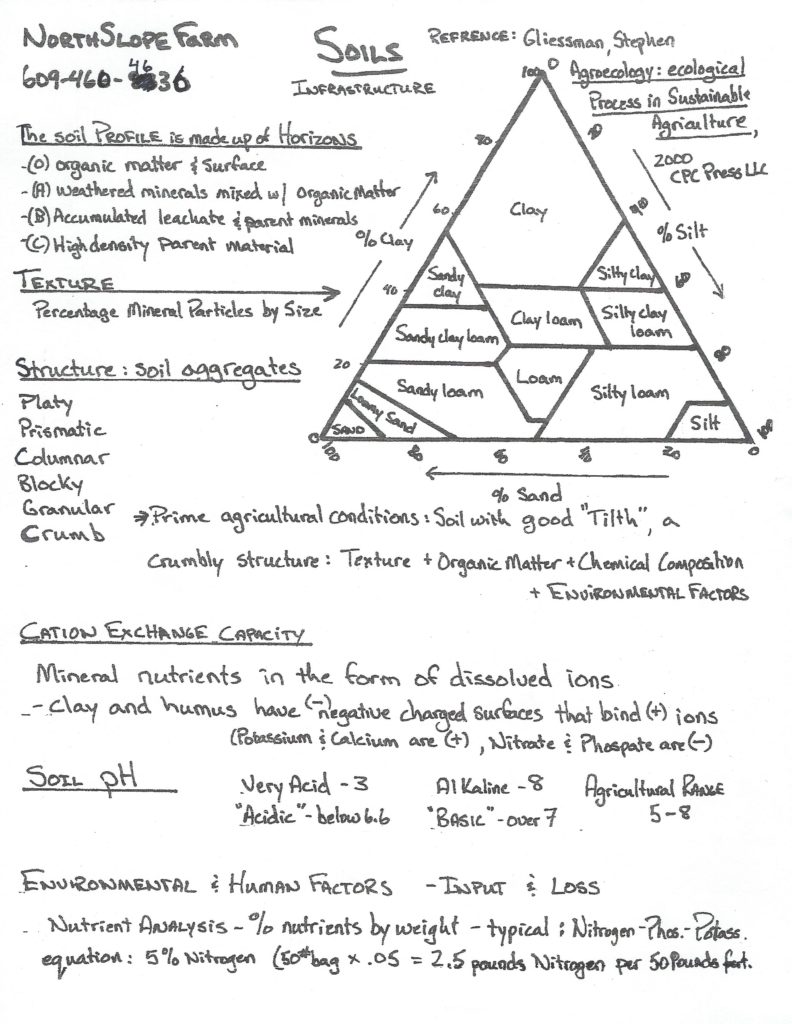 NorthSlope Farm
609-460-4636
SOILS
INFRASTRUCTURE
REFRENCE: Gliessman, Stephen
Agroecology: ecological
Process in Sustainable
Agriculture,
2000
CPC Press LLC
The soil PROFILE is made up of Horizons
-(O) organic matter & Surface
-(A) Weathered minerals mixed w/ Organic Matter
-(B) Accumulated leachate & parent minerals
-(C) High density Parent Material
TEXTURE
Percentage Mineral Particles by Size
Structure: soil aggregates
Platy
Prismatic
Columnar
Blocky
Granular
Crumb
100 0
80 20
% Clay 60 Clay 40 % Silt
40 Sandy clay Silty clay 60
Clay loam Silty clay loam
Sandy clay loam 80
20 Sandy loam Loam Silty loam
Loamy Sand
SAND Silt
0 100 80 20 0 100
% Sand
→ Prime agricultural conditions: Soil with good "Tilth", a
crumbly structure: Texture + Organic Matter + Chemical Composition
+ ENVIRONMENTAL FACTORS
CATION EXCHANGE CAPACITY
Mineral nutrients in the form of dissolved ions
- Clay and humus have (-) negative charged surfaces that bind (+) ions
(Potassium & Calcium are (+), Nitrate & Phospate are (-)
SOIL pH
Very Acid - 3 Alkaline - 8 Agricultural RANGE
"Acidic" - below 6.6 "BASIC" - over 7 5-8
ENVIRONMENTAL & HUMAN FACTORS - INPUT & LOSS
- Nutrient ANALYSIS - % nutrients by weight - typical: Nitrogen-Phos.-Potass.
equation: 5% Nitrogen (50# bag x .05 = 2.5 pounds Nitrogen per 50 Pounds fert.